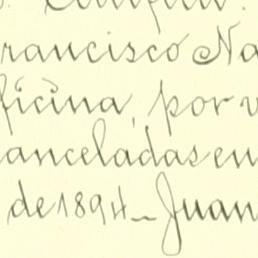 rancisco Na
ficina, por v
anceladas en
de 1894_ Juan